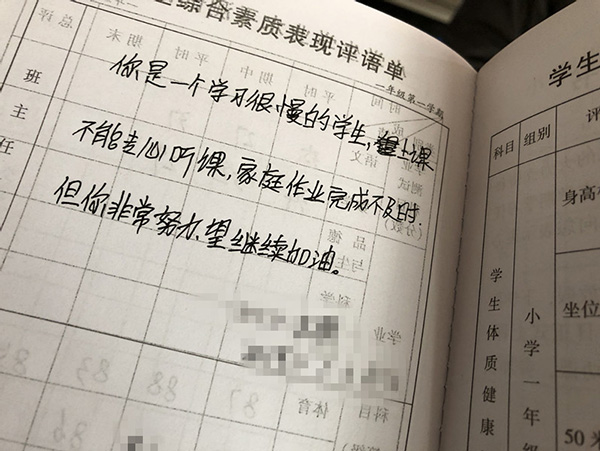 综合素质表现评语单
班主任
你是一个学习很慢的学生,上课
不能走心听课,家庭作业完成不及时.
但你非常努力、望继续加油。
学生
科目 组别 评
学生体质健康
小学一年级
身高
坐位
50米